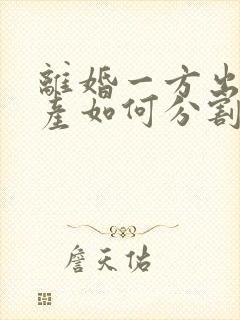 離婚一方出
産如何分割
詹天佑